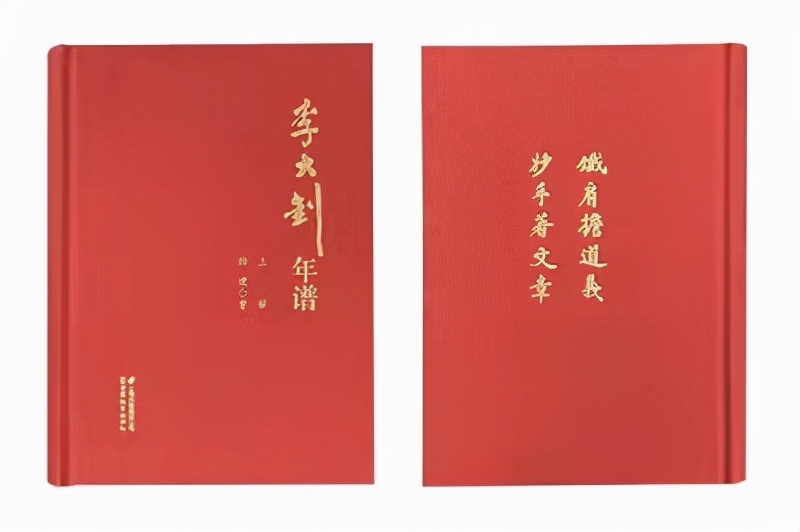 李大釗
年谱
上
鐵肩擔道義
妙手著文章